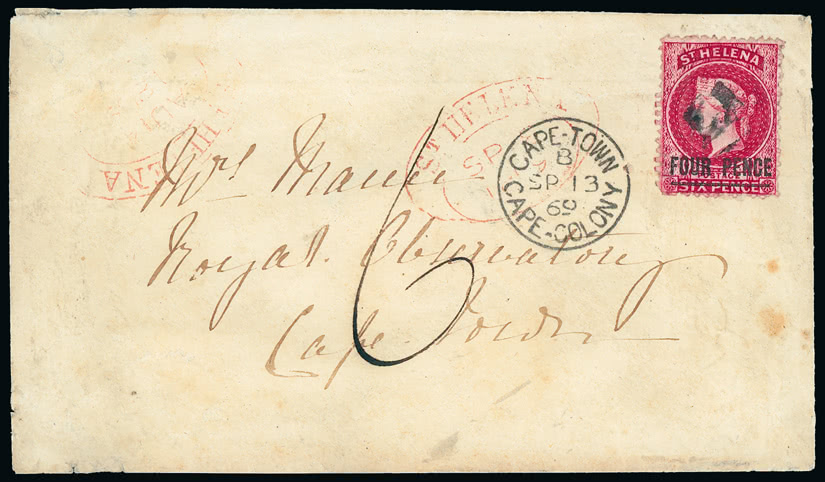 ST HELENA
FOUR PENCE
SIX PENCE
ST HELENA
SP
HELENA
CAPE-TOWN
B
SP 13
69
CAPE-COLONY
6
Mrs
Royal Observatory
Cape Town